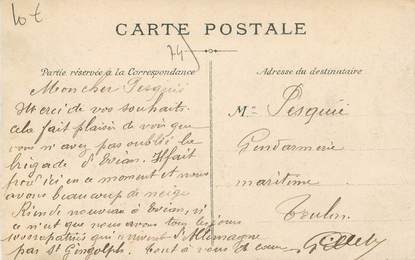 10 €
74
CARTE POSTALE
Partie réservée à la Correspondance
Adresse du destinataire
Mon cher Pesquié
Merci de vos souhaits
cela fait plaisir de voir que
vous n'avez pas oublié la
brigade d'Evian. Il fait
froid ici en ce moment et nous
avons beaucoup de neige
Rien de nouveau à Evian, si
ce n'est que nous avons tous les jours
rapatriés qui arrivent d'Allemagne
par St Gingolph. Tout à vous et
Gillet
M. Pesquié
Gendarmerie
maritime
Toulon